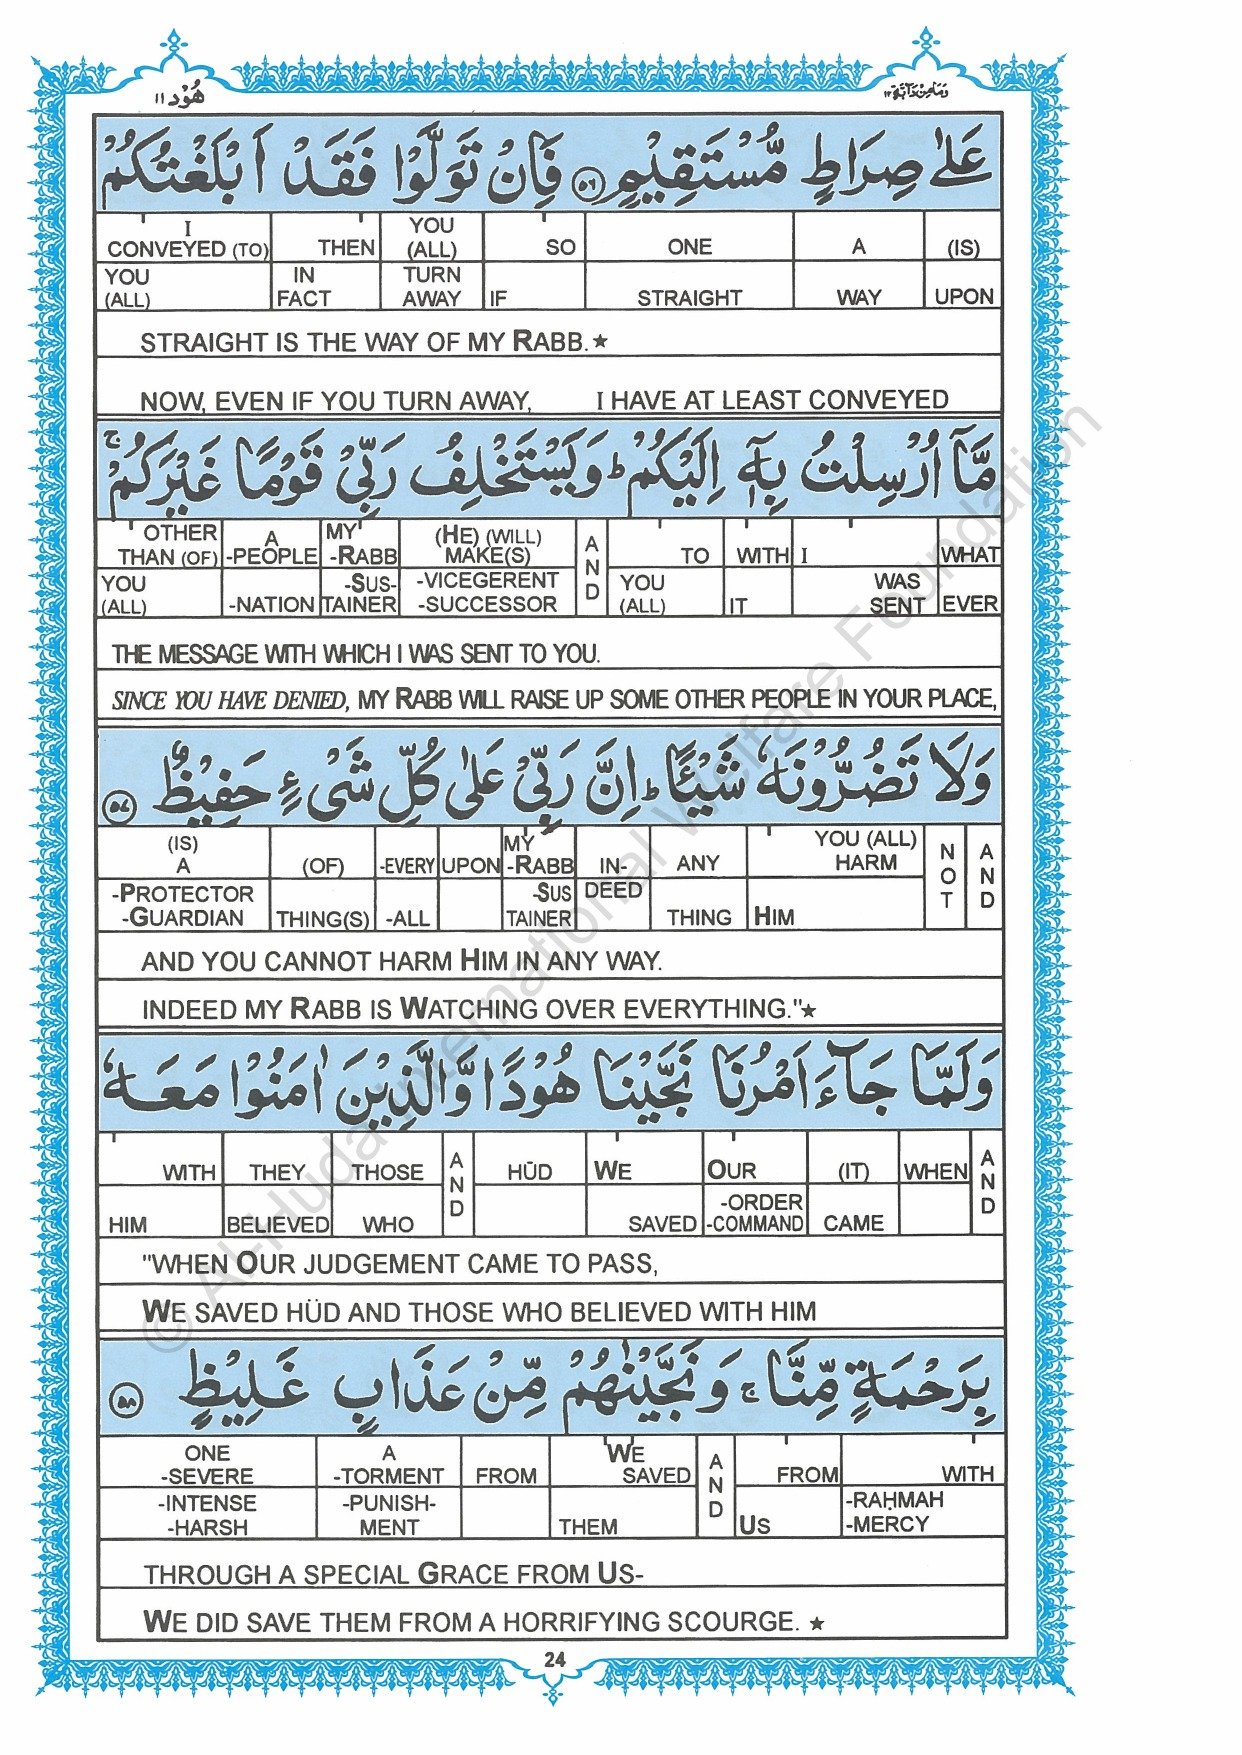 هُوْد ١١
وَمَا مِنْ دَآبَّة ١٢
عَلٰى صِرَاطٍ مُّسْتَقِيْمٍ ﴿٥٦﴾ فَاِنْ تَوَلَّوْا فَقَدْ اَبْلَغْتُكُمْ
I CONVEYED (TO) | THEN | YOU (ALL) | SO | ONE | A | (IS)
YOU (ALL) | IN FACT | TURN AWAY | IF | STRAIGHT | WAY | UPON
STRAIGHT IS THE WAY OF MY RABB.★
NOW, EVEN IF YOU TURN AWAY, I HAVE AT LEAST CONVEYED
مَّآ اُرْسِلْتُ بِهٖٓ اِلَيْكُمْ ؕ وَيَسْتَخْلِفُ رَبِّيْ قَوْمًا غَيْرَكُمْ ۚ
OTHER THAN (OF) | A -PEOPLE | MY -RABB | (HE) (WILL) MAKE(S) | AND | TO | WITH | I | WHAT
YOU (ALL) | -NATION | -SUS-TAINER | -VICEGERENT -SUCCESSOR | YOU (ALL) | IT | WAS SENT | EVER
THE MESSAGE WITH WHICH I WAS SENT TO YOU.
SINCE YOU HAVE DENIED, MY RABB WILL RAISE UP SOME OTHER PEOPLE IN YOUR PLACE,
وَلَا تَضُرُّوْنَهٗ شَيْـًٔا ؕ اِنَّ رَبِّيْ عَلٰى كُلِّ شَيْءٍ حَفِيْظٌ ﴿٥٧﴾
(IS) A | (OF) | -EVERY | UPON | MY -RABB | IN- | ANY | YOU (ALL) HARM | NOT | AND
-PROTECTOR -GUARDIAN | THING(S) | -ALL | -SUS TAINER | DEED | THING | HIM
AND YOU CANNOT HARM HIM IN ANY WAY.
INDEED MY RABB IS WATCHING OVER EVERYTHING."★
وَلَمَّا جَآءَ اَمْرُنَا نَجَّيْنَا هُوْدًا وَّالَّذِيْنَ اٰمَنُوْا مَعَهٗ
WITH | THEY | THOSE | AND | HŪD | WE | OUR | (IT) | WHEN | AND
HIM | BELIEVED | WHO | SAVED | -ORDER -COMMAND | CAME
"WHEN OUR JUDGEMENT CAME TO PASS,
WE SAVED HÜD AND THOSE WHO BELIEVED WITH HIM
بِرَحْمَةٍ مِّنَّا ۚ وَنَجَّيْنٰهُمْ مِّنْ عَذَابٍ غَلِيْظٍ ﴿٥٨﴾
ONE -SEVERE | A -TORMENT | FROM | WE SAVED | AND | FROM | WITH
-INTENSE -HARSH | -PUNISH-MENT | THEM | US | -RAḤMAH -MERCY
THROUGH A SPECIAL GRACE FROM US-
WE DID SAVE THEM FROM A HORRIFYING SCOURGE. ★
24
© Al-Huda International Welfare Foundation